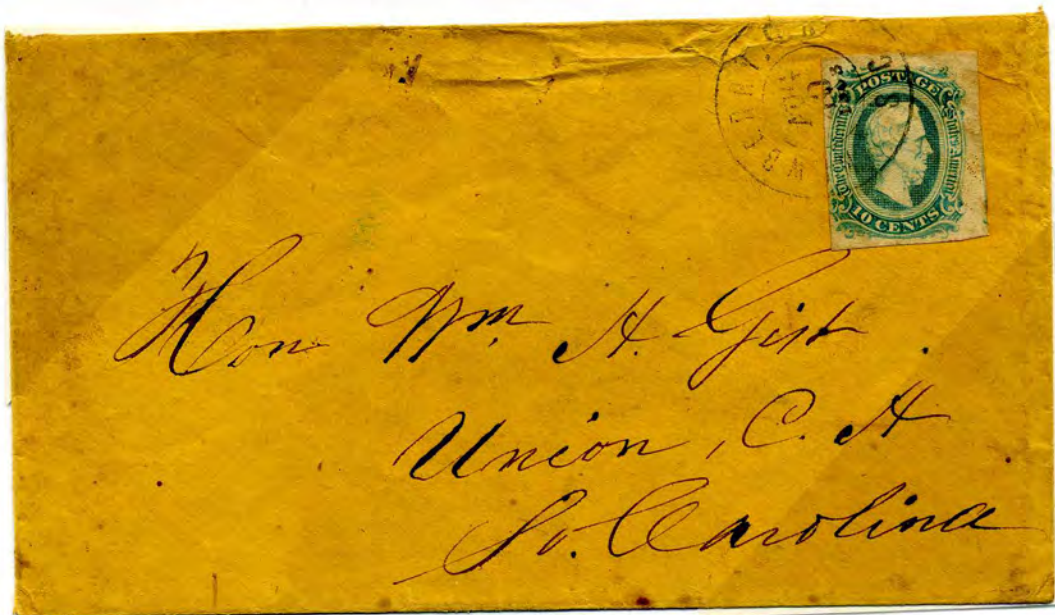 WBERRY C.H.
S.C.
POSTAGE
The Confederate States America
10 CENTS
Hon Wm. H. Gist
Union, C. H
So. Carolina